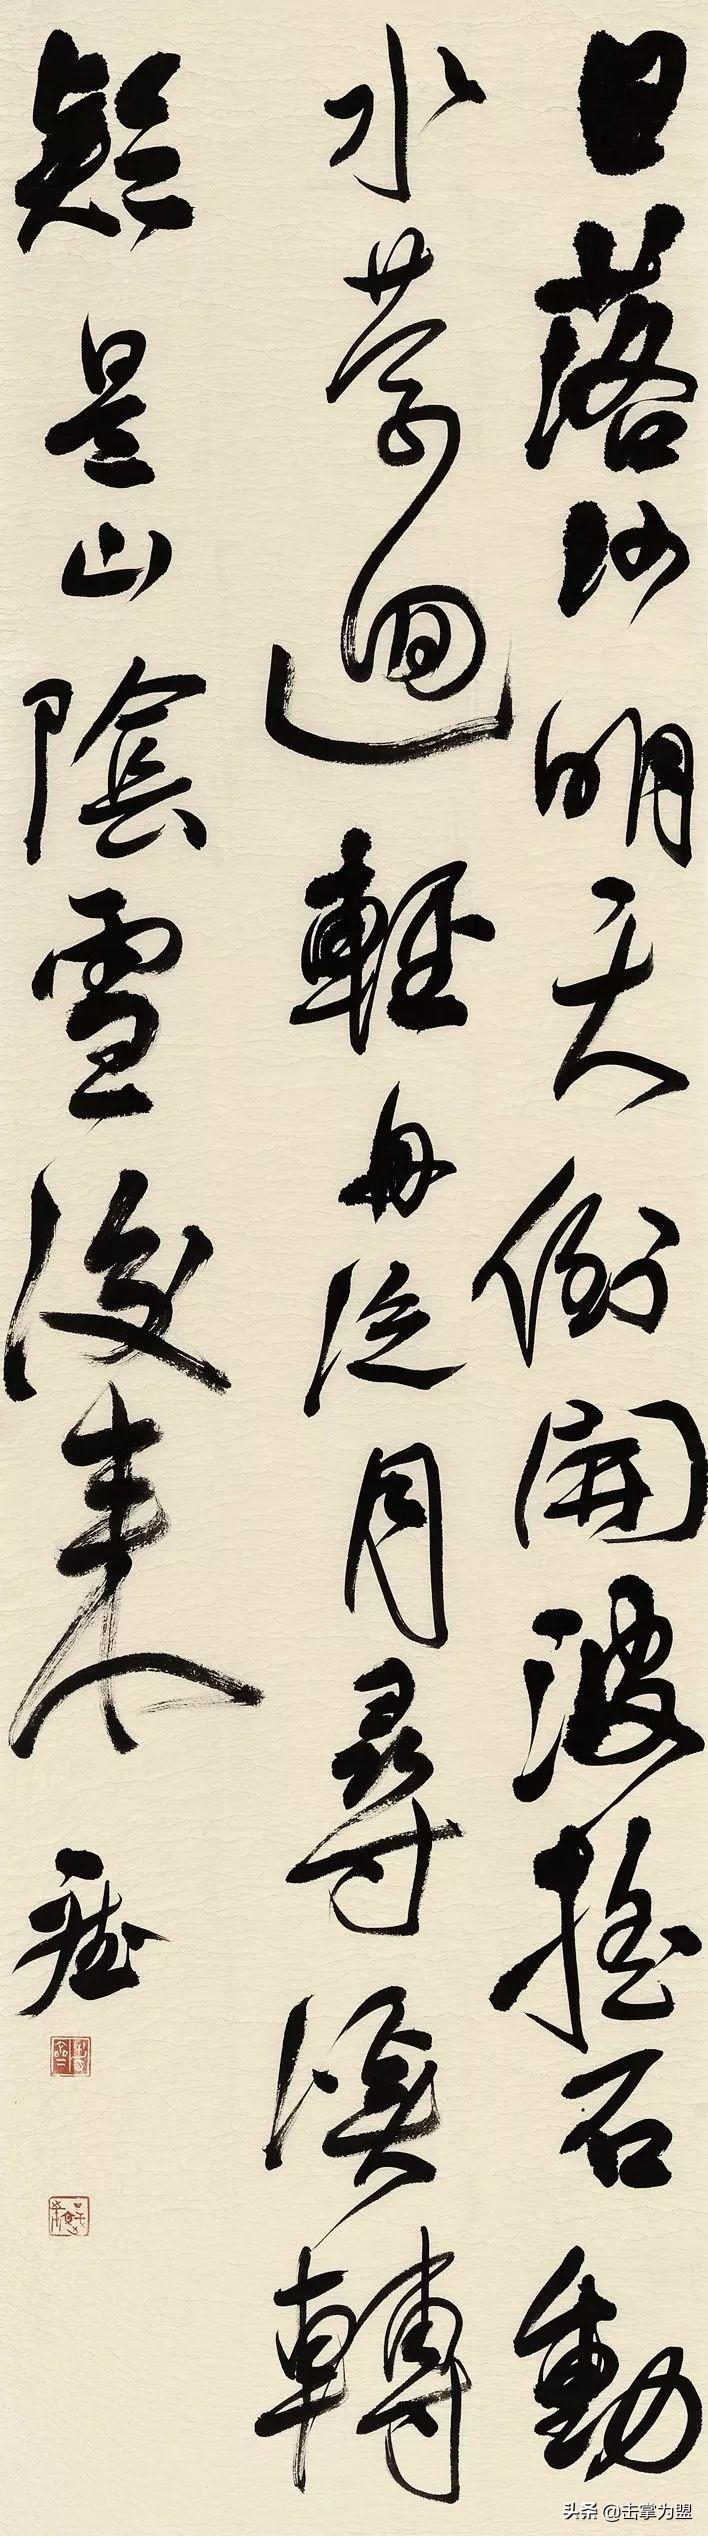 日落沙明天倒開波搖石動
水縈迴輕舟泛月尋溪轉
疑是山陰雪後來
頭条 @击掌为盟